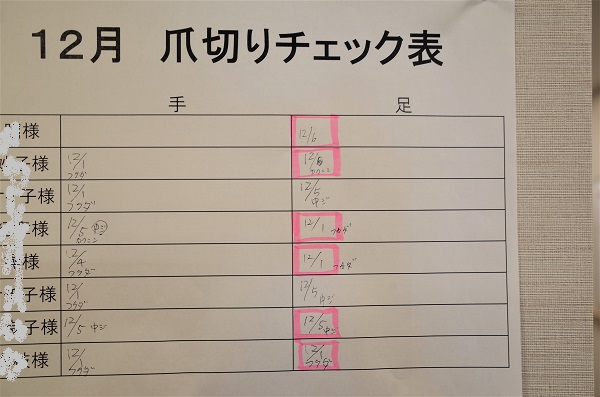 12月 爪切りチェック表
手 足
様 12/6
子様 12/1 フクダ 12/5 カクニン
子様 12/1 フクダ 12/5 中ジ
様 12/5 中ジ カクニン 12/1 フクダ
様 12/4 フクダ 12/1 フクダ
子様 12/1 フクダ 12/5 中ジ
子様 12/5 中ジ 12/5 中ジ
様 12/1 フクダ 12/1 フクダ